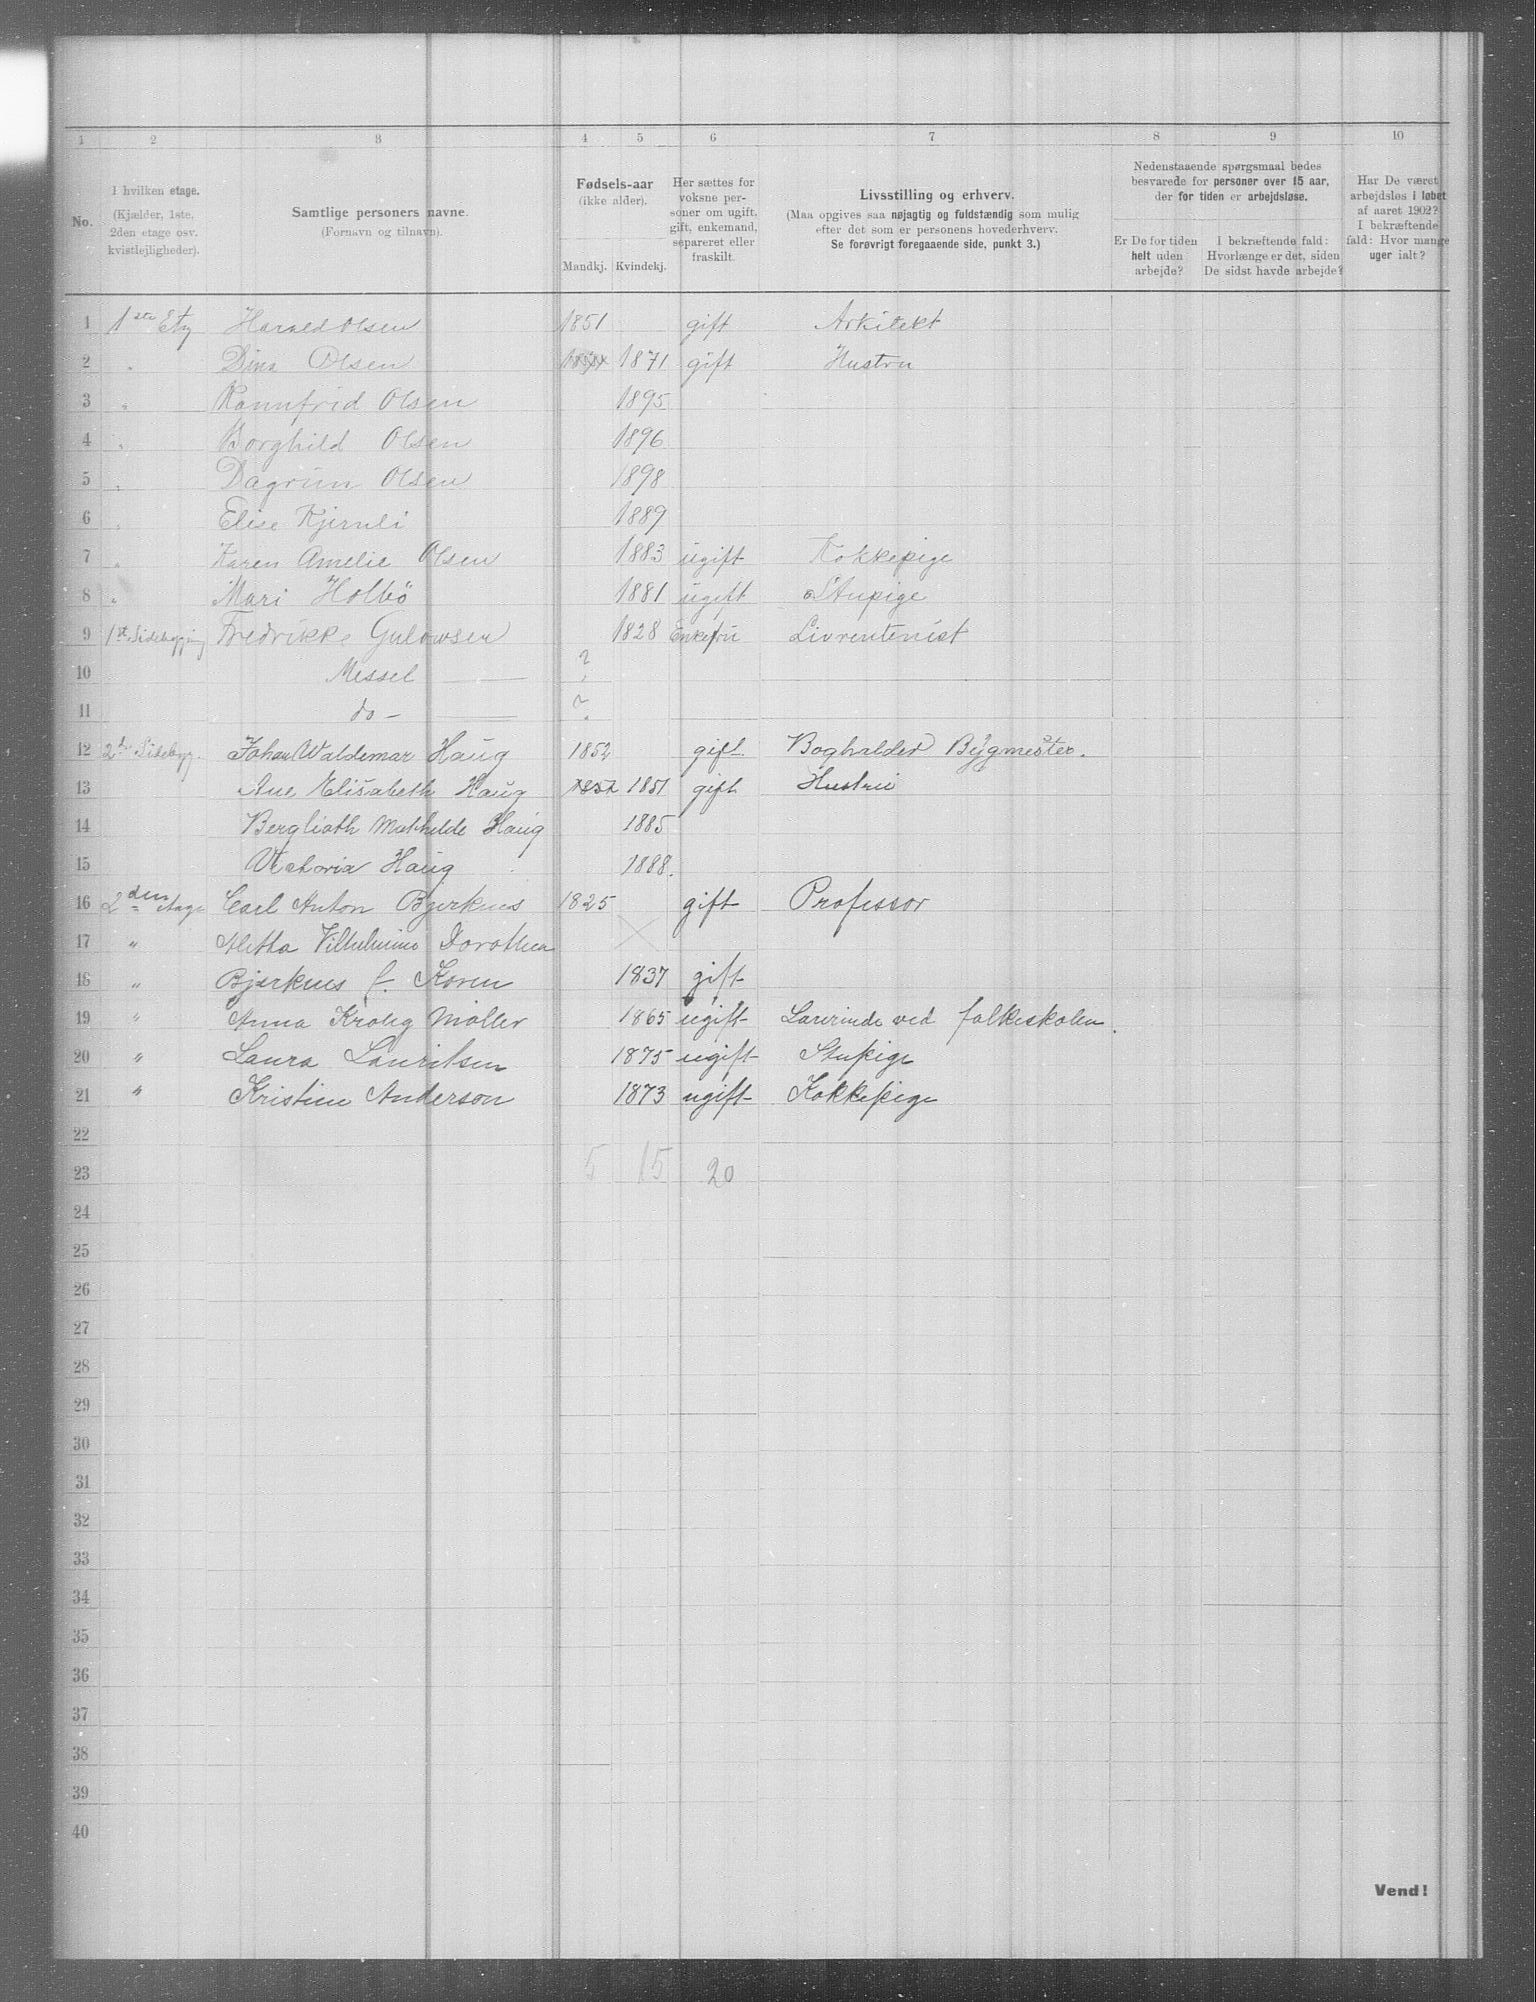 1 2 3 4 5 6 7 8 9 10
No.
I hvilken etage.
(Kjælder, 1ste, 2den etage osv. kvistlejligheder).
Samtlige personers navne.
(Fornavn og tilnavn).
Fødsels-aar
(ikke alder).
Mandkj. Kvindekj.
Her sættes for voksne personer om ugift, gift, enkemand, separeret eller fraskilt.
Livsstilling og erhverv.
(Maa opgives saa nøjagtig og fuldstændig som mulig efter det som er personens hovederhverv.
Se forøvrigt foregaaende side, punkt 3.)
Nedenstaaende spørgsmaal bedes besvarede for personer over 15 aar, der for tiden er arbejdsløse.
Er De for tiden helt uden arbejde?
I bekræftende fald: Hvorlænge er det, siden De sidst havde arbejde?
Har De været arbejdsløs i løbet af aaret 1902? I bekræftende fald: Hvor mange uger ialt?
1 1ste Etg Harald Olsen 1851 gift Arkitekt
2 " Dina Olsen 1871 gift Hustru
3 " Rannfrid Olsen 1895
4 " Borghild Olsen 1896
5 " Dagrun Olsen 1898
6 " Elise Kjernli 1889
7 " Karen Amelie Olsen 1883 ugift Kokkepige
8 " Mari Holbö 1881 ugift Stupige
9 1st Sidebygning Fredrikke Gulowsen 1828 Enkefru Livrentenist
10 Messel — ?
11 do - — ?
12 2den Sidebyg. Johan Waldemar Haug 1852 gift Boghalder Bygmester.
13 Ane Elisabeth Haug 1852 1851 gift Hustru
14 Berglioth Mathilde Haug 1885
15 Victoria Haug 1888.
16 2den etage Carl Anton Bjerknes 1825 gift Professor
17 " Aletta Vilhelmine Dorothea
18 " Bjerknes f. Koren 1837 gift
19 " Anna Krohg Møller 1865 ugift Lærerinde ved folkeskolen.
20 " Laura Lauritsen 1875 ugift Stupige
21 " Kristine Anderson 1873 ugift Kokkepige
22
23 5 15 20
24
25
26
27
28
29
30
31
32
33
34
35
36
37
38
39
40
Vend!